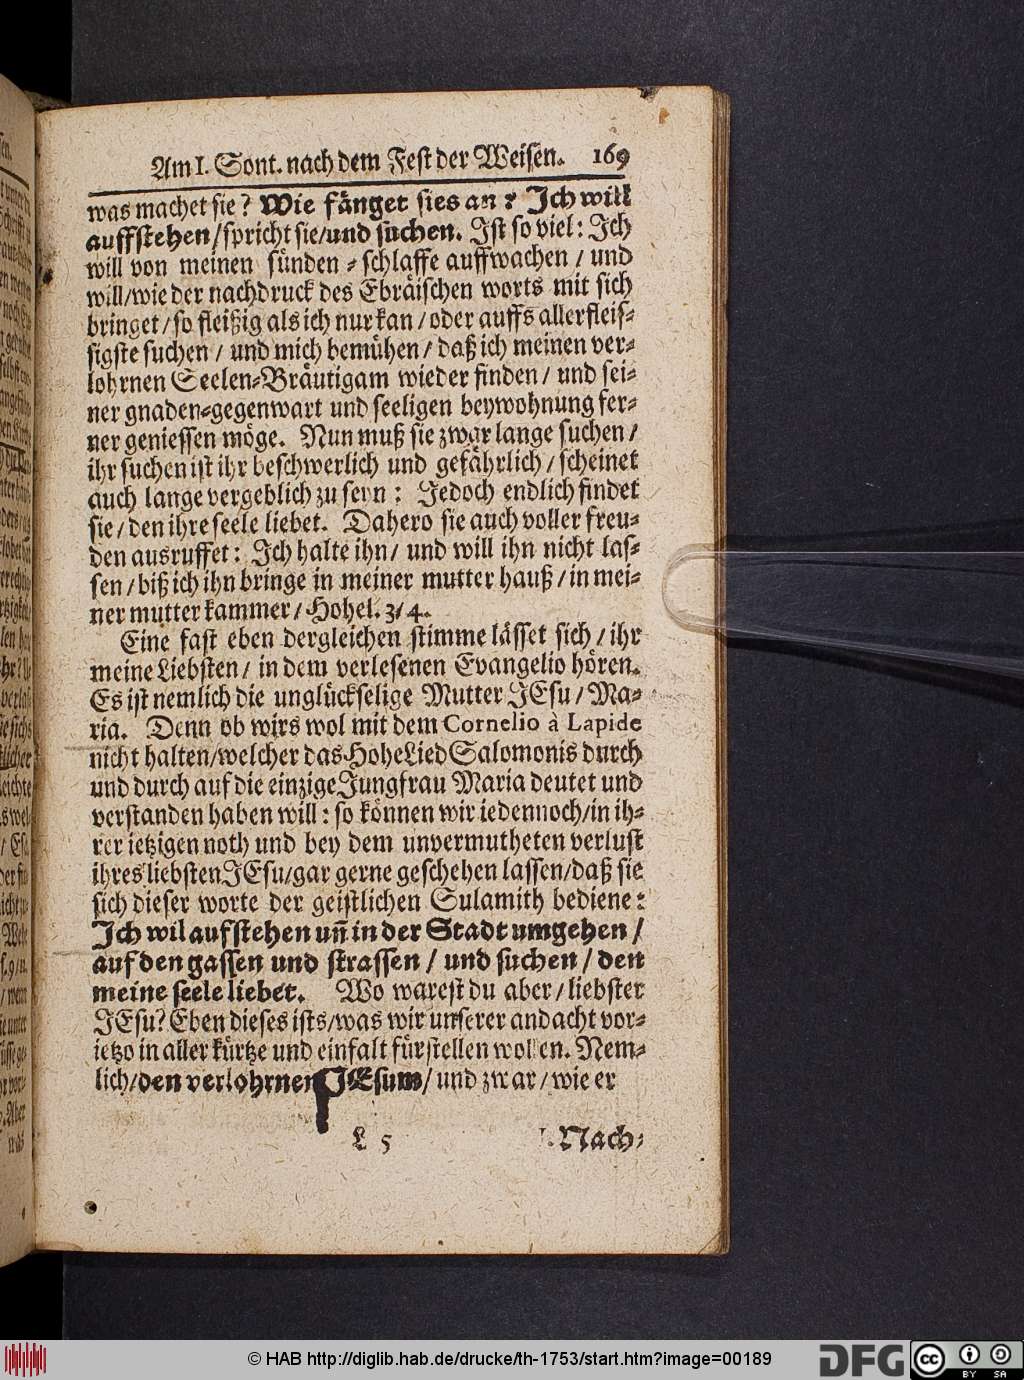 Am I. Sont. nach dem Fest der Weisen. 169
was machet sie? Wie fänget sies an? Ich will
auffstehen/spricht sie/und suchen. Ist so viel: Ich
will von meinen sünden-schlaffe auffwachen/ und
will/wie der nachdruck des Ebräischen worts mit sich
bringet/so fleißig als ich nur kan/oder auffs allerfleis-
sigste suchen/ und mich bemühen/ daß ich meinen ver-
lohrnen Seelen-Bräutigam wieder finden/ und sei-
ner gnaden-gegenwart und seeligen beywohnung fer-
ner geniessen möge. Nun muß sie zwar lange suchen/
ihr suchen ist ihr beschwerlich und gefährlich/scheinet
auch lange vergeblich zu seyn: Jedoch endlich findet
sie/den ihre seele liebet. Dahero sie auch voller freu-
den ausruffet: Ich halte ihn/ und will ihn nicht las-
sen/biß ich ihn bringe in meiner mutter hauß/in mei-
ner mutter kammer/Hohel. 3/4.
Eine fast eben dergleichen stimme lässet sich/ihr
meine Liebsten/ in dem verlesenen Evangelio hören.
Es ist nemlich die unglückselige Mutter JEsu/Ma-
ria. Denn ob wirs wol mit dem Cornelio à Lapide
nicht halten/welcher das Hohe Lied Salomonis durch
und durch auf die einzige Jungfrau Maria deutet und
verstanden haben will: so können wir iedennoch/in ih-
rer ietzigen noth und bey dem unvermutheten verlust
ihres liebsten JEsu/gar gerne geschehen lassen/daß sie
sich dieser worte der geistlichen Sulamith bediene:
Ich wil aufstehen uñ in der Stadt umgehen/
auf den gassen und strassen/ und suchen/ den
meine seele liebet. Wo warest du aber/liebster
JEsu? Eben dieses ists/was wir unserer andacht vor-
ietzo in aller kürtze und einfalt fürstellen wollen. Nem-
lich/den verlohrnen JEsum/und zwar/wie er
L 5 I. Nach-
© HAB http://diglib.hab.de/drucke/th-1753/start.htm?image=00189
DFG cc BY SA